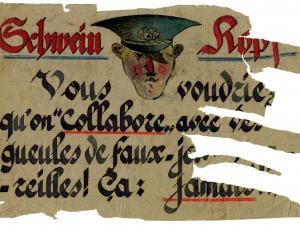 Schwein Köpf
Vous voudriez
qu'on "Collabore„ avec des
gueules de faux-je
-reilles! Ça: Jamais